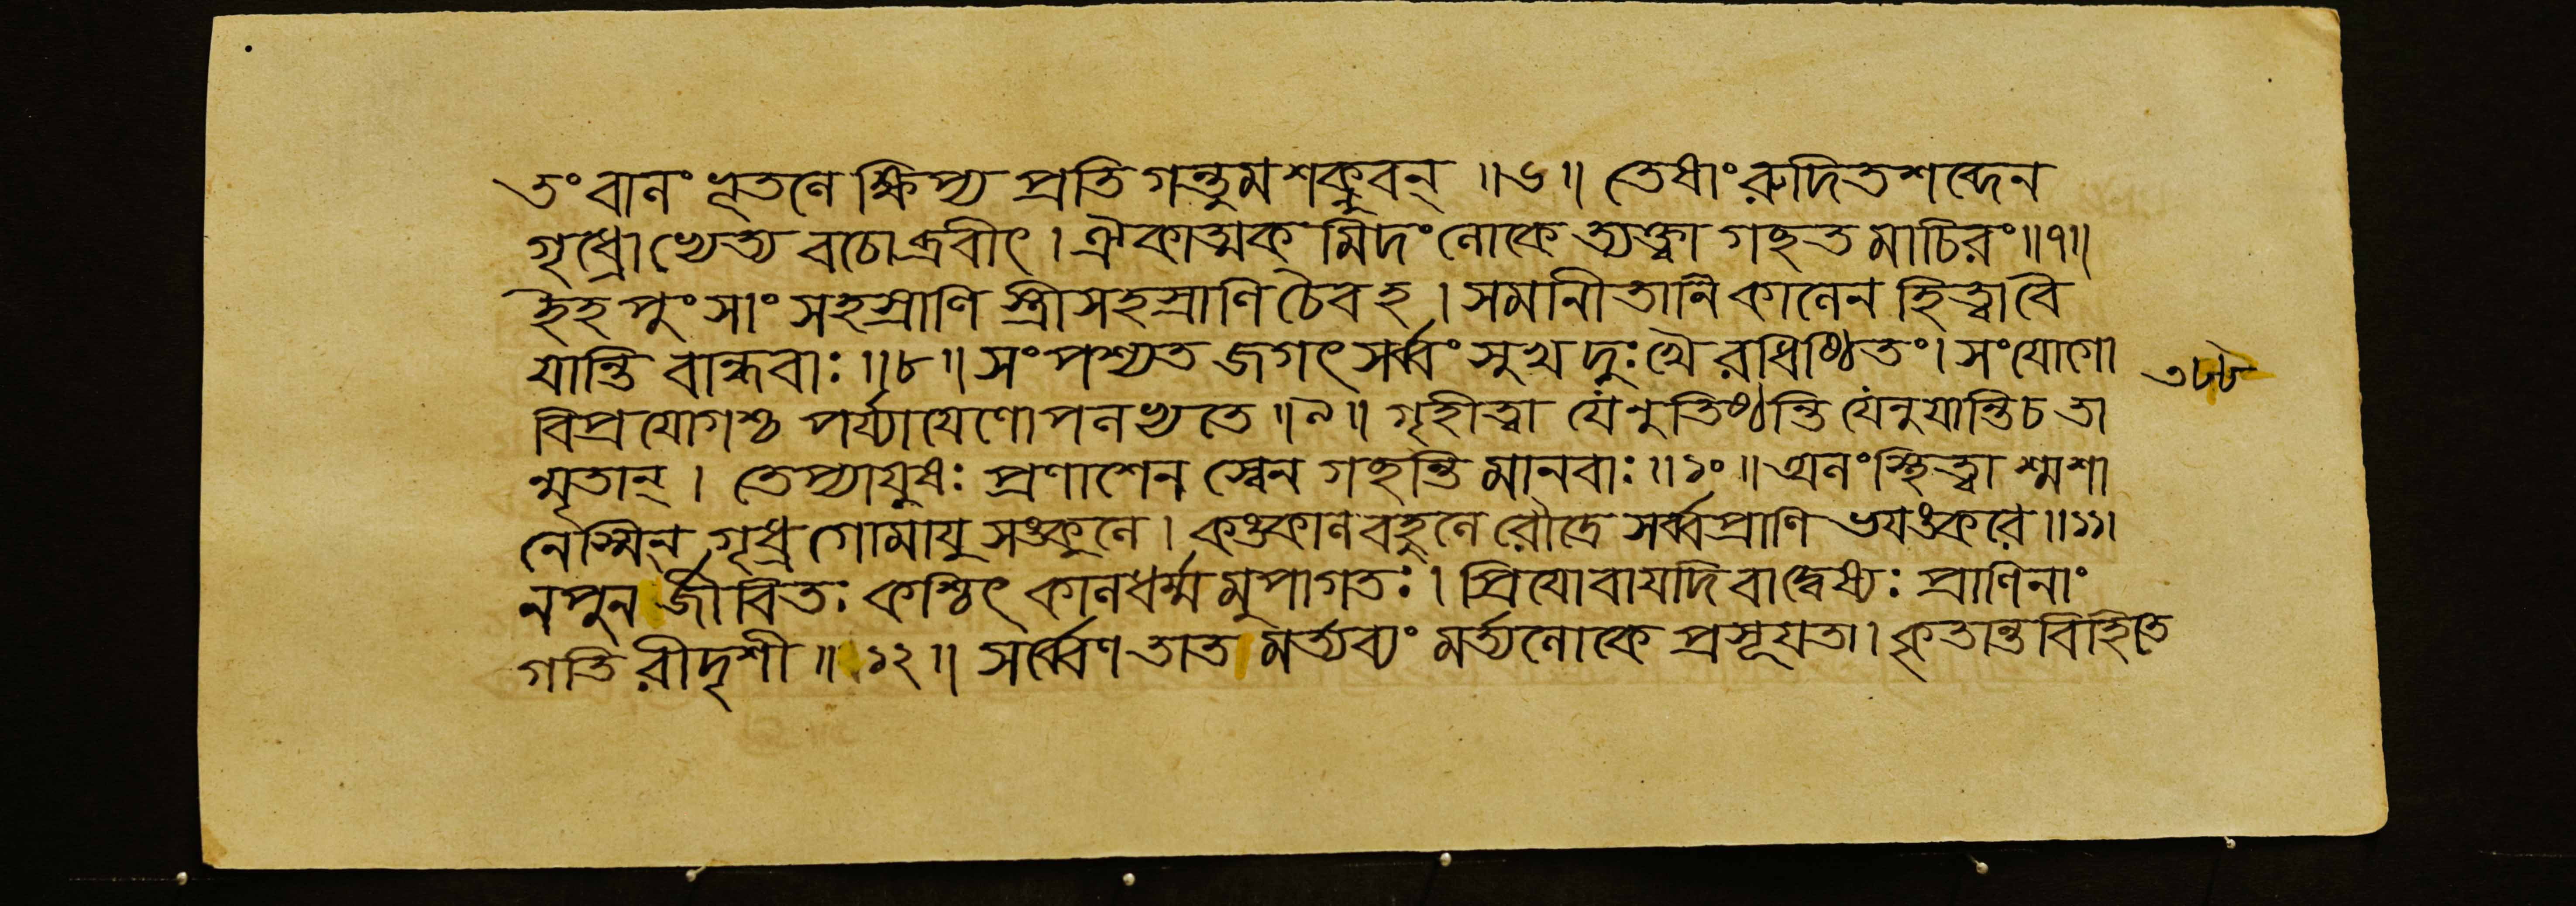 তং বালং ভূতলে ক্ষিপ্য প্রতি গন্তুমশক্নুবন্ ॥৬॥ তেষাং রুদিতশব্দেন
গৃধ্রোভ্যেত্য বচোব্রবীৎ । ঐকাত্মক মিদং লোকে ত্যক্ত্বা গছত মাচিরং ॥৭॥
ইহ পুংসাং সহস্রাণি স্ত্রীসহস্রাণি চৈবহ । সমানীতানি কালেন হিত্বা বৈ
যান্তি বান্ধবাঃ ॥৮॥ সংপশ্যত জগৎ সর্ব্বং সুখ দুঃখৈ রধিষ্ঠিতং। সংযোগো
বিপ্রযোগশ্চ পর্য্যাযেণোপলভ্যতে ॥৯॥ গৃহীত্বা যেনুতিষ্ঠন্তি যেনুযান্তি চ তা
ন্মৃতান্ । তেপ্যাযুষঃ প্রণাশেন স্বেন গছন্তি মানবাঃ ॥১০॥ অলং স্থিত্বা শ্মশা
নেস্মিন্ গৃধ্র গোমাযু সঙ্কুলে । কঙ্কালবহুলে রৌদ্রে সর্ব্বপ্রাণি ভযঙ্করে ॥১১।
নপুন র্জীবিতঃ কশ্চিৎ কালধর্ম্ম মুপাগতঃ । প্রিযোবাযদি বাদ্বেষ্যঃ প্রাণিনাং
গতি রীদৃশী ॥ ১২ ॥ সর্ব্বেণ তাত মর্ত্যব্যং মর্ত্যলোকে প্রসূযতা । কৃতান্ত বিহিতে
৩৮৮